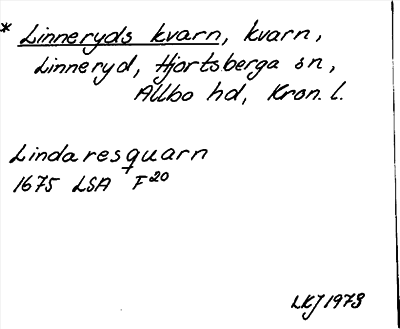 * Linneryds kvarn, kvarn,
Linneryd, Hjortsberga sn,
Allbo hd, Kron. l.
Lindaresquarn
1675 LSA F20
LKJ 1973